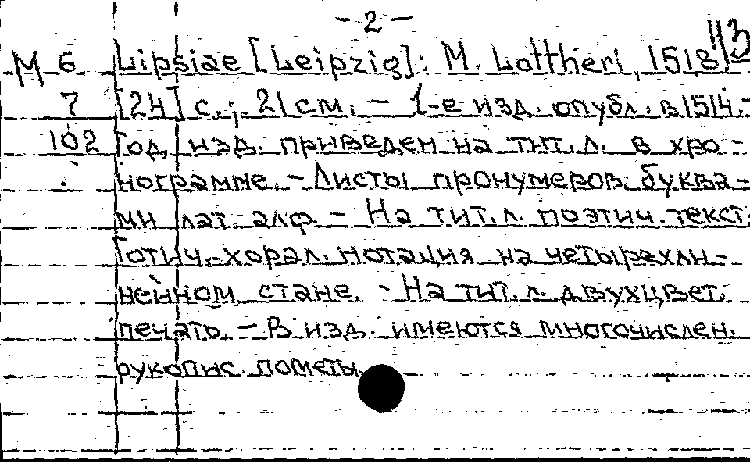 - 2 -
113
М 6 Lipsiae [Leipzig]: M. Lottheri, 1518.
7 [24] с.; 21 см. – 1-е изд. опубл. в 1514.
102 Год изд. приведен на тит. л. в хро-
нограмме. – Листы пронумеров. буква-
ми лат. алф. – На тит. л. поэтич. текст.
Готич.-хорал. нотация на четырехли-
нейном стане. – На тит. л. двухцвет.
печать. – В изд. имеются многочислен.
рукопис. пометы.